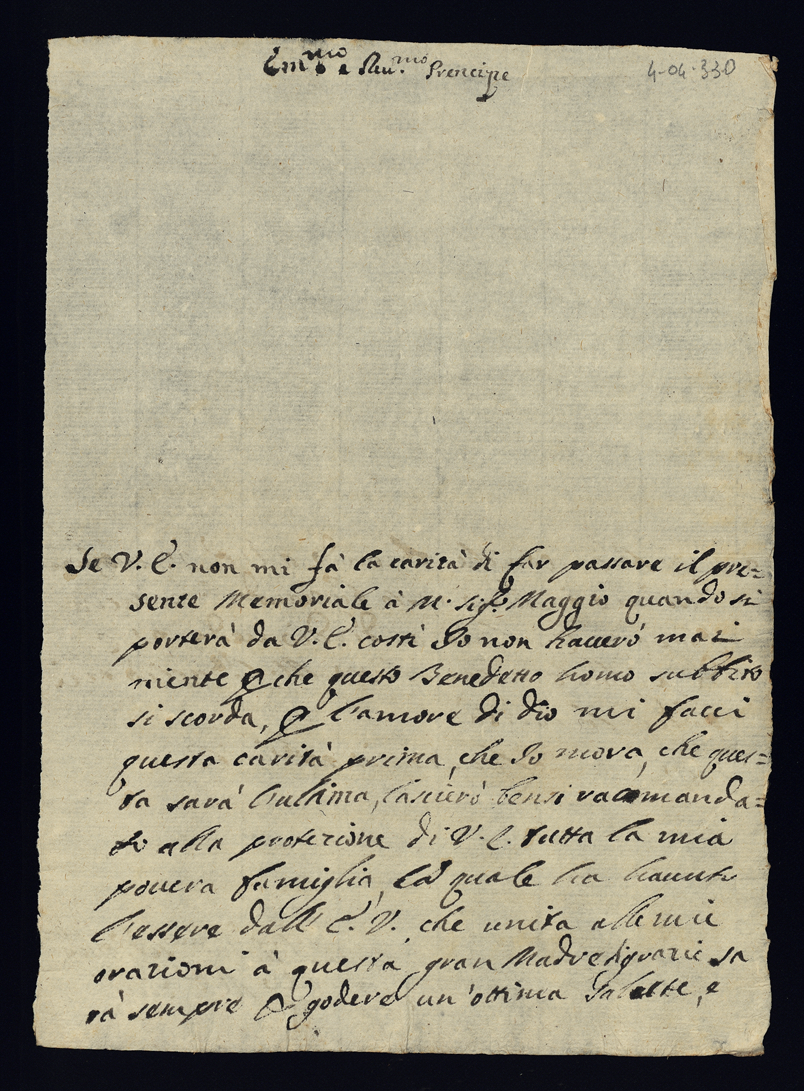 Em.mo e Reu.mo Prencipe
4-04-330
Se V. E. non mi fà la carità di far passare il pre=
sente Memoriale à M. Sig.r Maggio quando si
porterà da V. E. costì Io non hauerò mai
niente p che questo Benedetto homo subbito
si scorda, p l'amore di dio mi facci
questa carità prima, che Io mora, che ques=
ta sarà l'ultima, lascierò bensi racomanda=
to alla protezione di V. E. tutta la mia
pouera famiglia, la quale ha hauuto
l'essere dall'E. V. che unita alle mie
orazioni à questa gran Madre di grazie sa
rà sempre p godere un'ottima salute, e